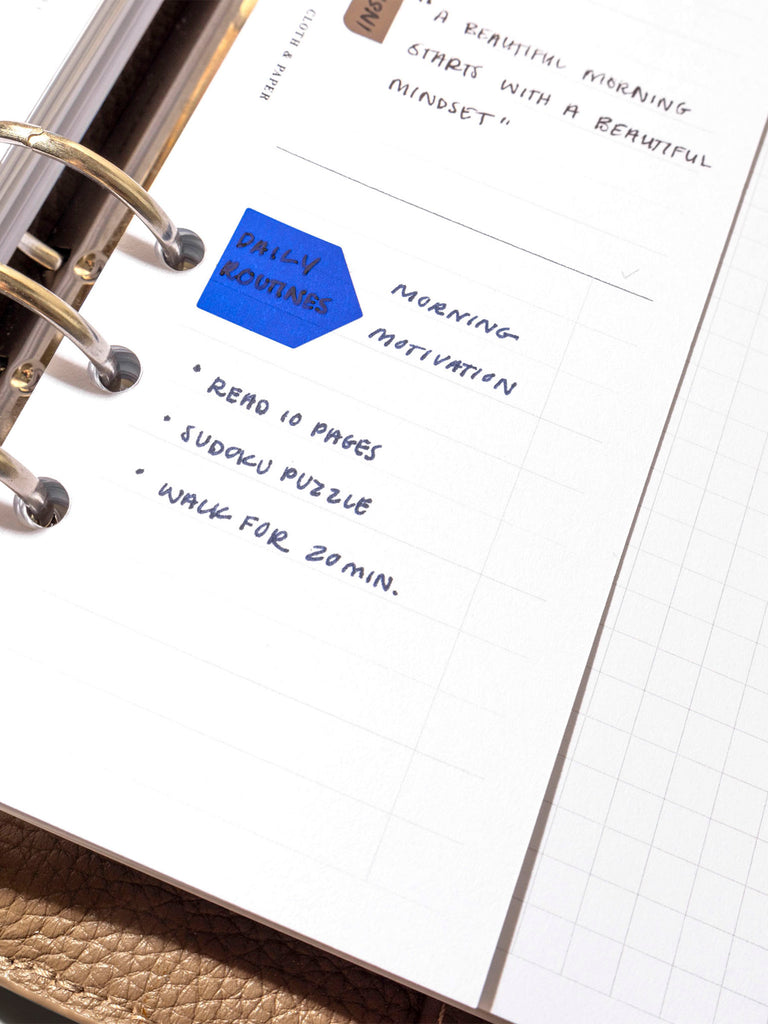 CLOTH & PAPER
"A BEAUTIFUL MORNING
STARTS WITH A BEAUTIFUL
MINDSET"
DAILY
ROUTINES
MORNING
MOTIVATION
• READ 10 PAGES
• SUDOKU PUZZLE
• WALK FOR 20 MIN.